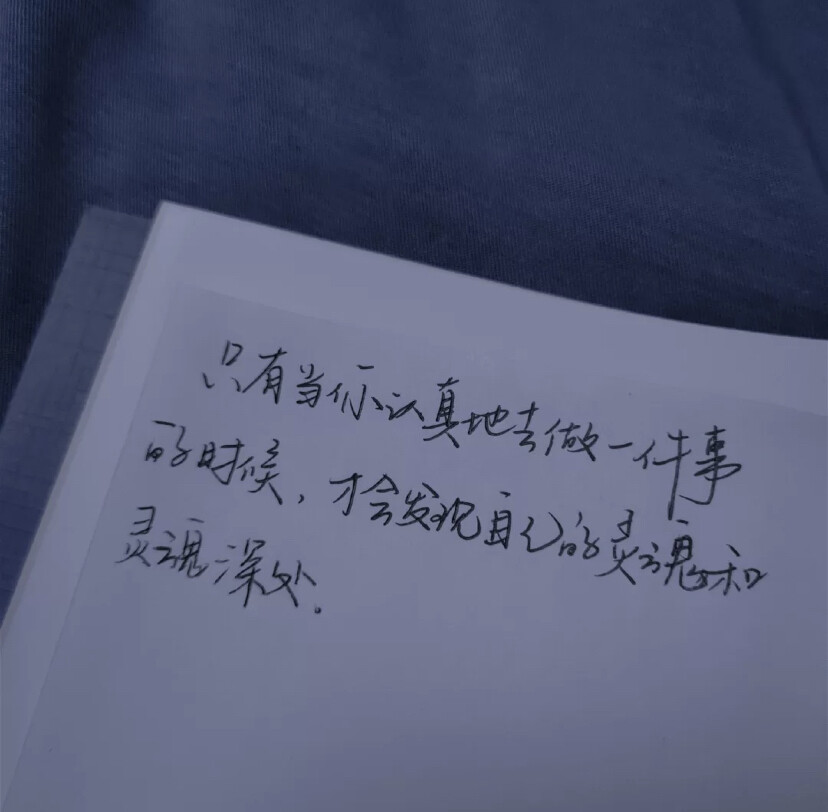 只有当你认真地去做一件事
的时候，才会发现自己的灵魂和
灵魂深处.